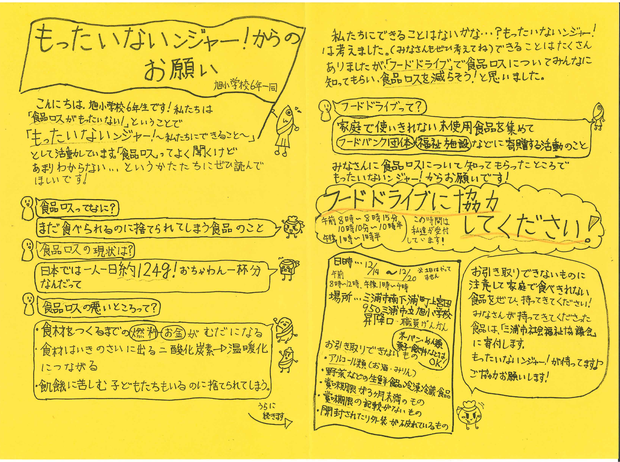 もったいないンジャー!からの
お願い
旭小学校6年一同
こんにちは、旭小学校6年生です!私たちは
「食品ロスがもったいない!」ということで
「もったいないンジャー!~私たちにできること~」
として活動しています。「食品ロス」ってよく聞くけど
あまりわからない...というかたたちにぜひ読んで
ほしいです!
食品ロスってなに?
まだ食べられるのに捨てられてしまう食品のこと
食品ロスの現状は?
日本では一人一日約124g!おちゃわん一杯分
なんだって
食品ロスの悪いところって?
・食材をつくるまでの燃料お金がむだになる
・食材はいきのさいに出る二酸化炭素→温暖化
につながる
・飢餓に苦しむ子どもたちもいるのに捨てられてしまう。
うらに
続きます
私たちにできることはないかな...?もったいないンジャー!
は考えました。(みなさんもぜひ考えてね)できることはたくさん
ありましたが、「フードドライブ」で食品ロスについてみんなに
知ってもらい、食品ロスを減らそう!と思いました。
フードドライブって?
家庭で使いきれない未使用食品を集めて
フードバンク団体、福祉施設などに寄贈する活動のこと
みなさんに食品ロスについて知ってもらったところで
もったいないンジャー!からお願いです!
フードドライブに協力
してください!
午前8時~8時15分、
10時10分~10時半
午後1時~1時半
この時間は
私達が受付
しています!
日時...12/19~12/20
午前
8時~12時、午後1時~4時
場所...三浦市南下浦町上宮田
950三浦市立旭小学校
昇降口
職員げんかん
お引き取りできない
もの
OK
・アルコール類(お酒・みりん)
・野菜などの生鮮食品・冷凍冷蔵食品
・賞味期限が3ヶ月未満のもの
・賞味期限の記載がないもの
・開封されたり外装が破れているもの
お引き取りできないものに
注意して家庭で食べきれない
食品をぜひ、持ってきてください!
みなさんが持ってきてくださった
食品は、「三浦市社会福祉協議会」
に寄付します。
もったいないンジャー!が待ってます♪
ご協力お願いします!